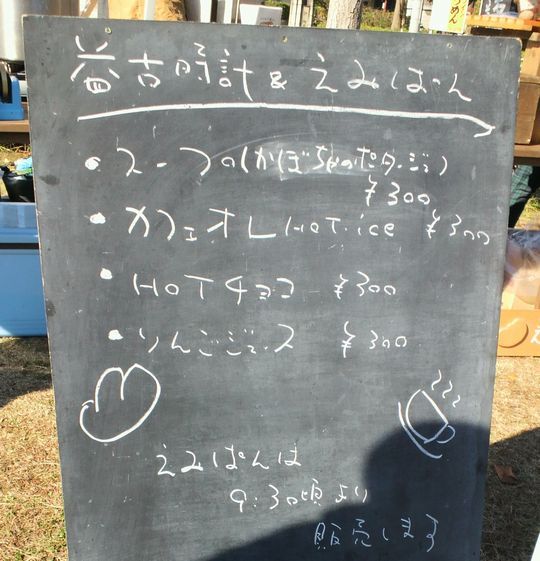 益古時計&えみぱん
・スープ(かぼちゃのポタージュ)
¥300
・カフェオレHOT・ice ¥300
・HOTチョコ ¥300
・りんごジュース ¥300
えみぱんは
9:30頃より
販売します